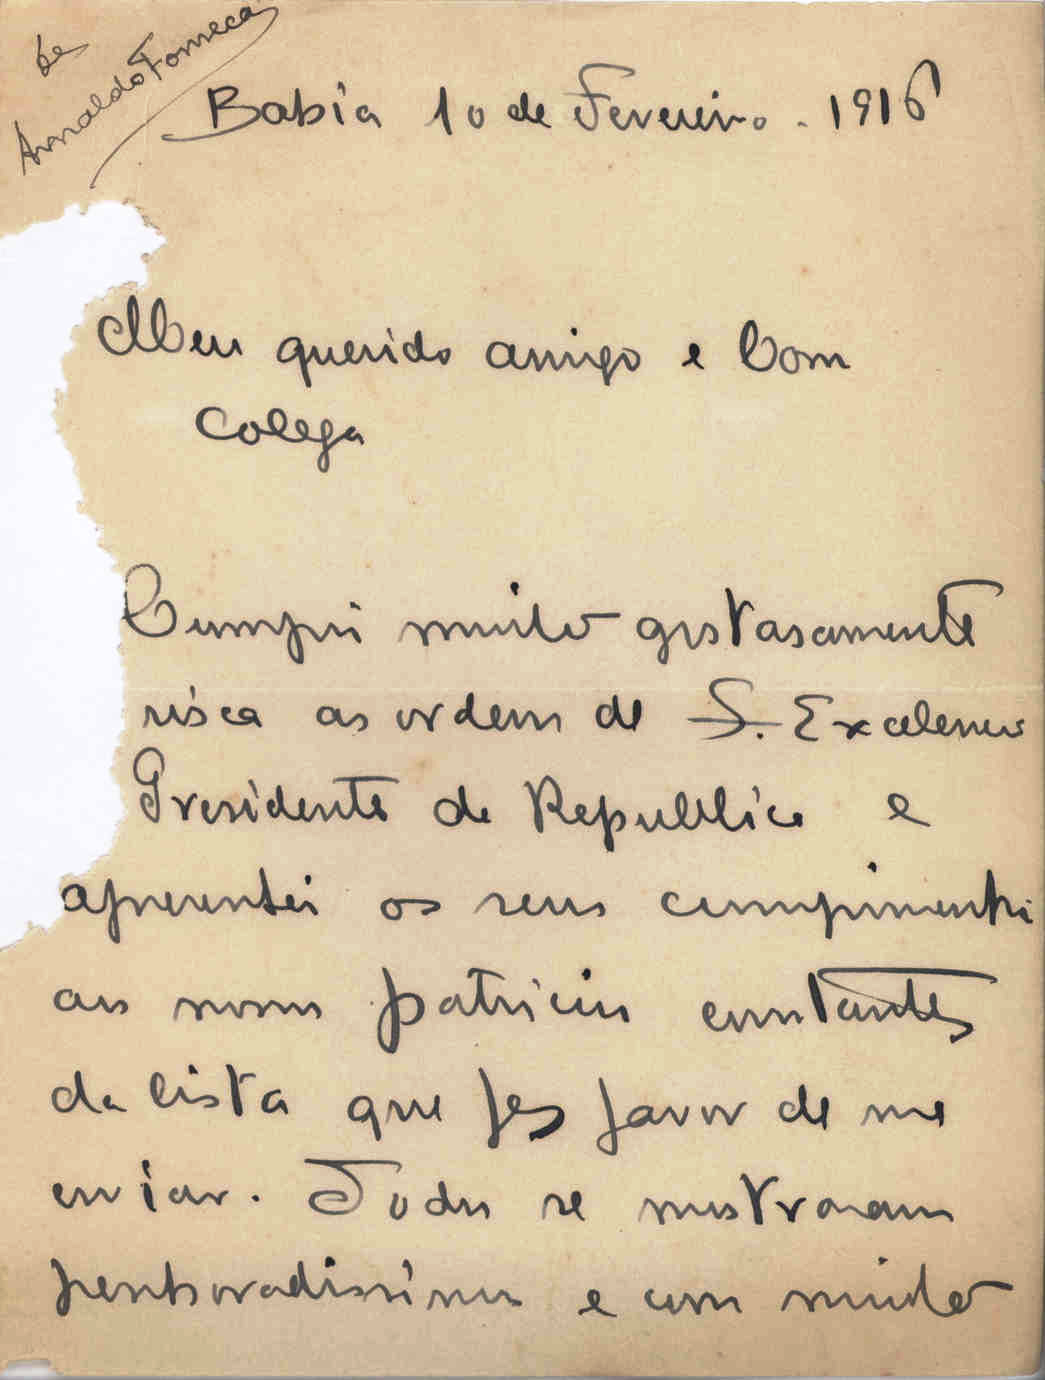 de
Arnaldo Fonseca
Bahia 10 de Fevereiro. 1916
Meu querido amigo e bom
colega
Cumpri muito gostosamente
risca as ordem de S. Excelencia
Presidente da Republica e
apresentei os seus cumprimentos
aos nossos patricios constantes
da lista que fez favor de me
enviar. Todos se mostraram
penhoradissimos e com muito